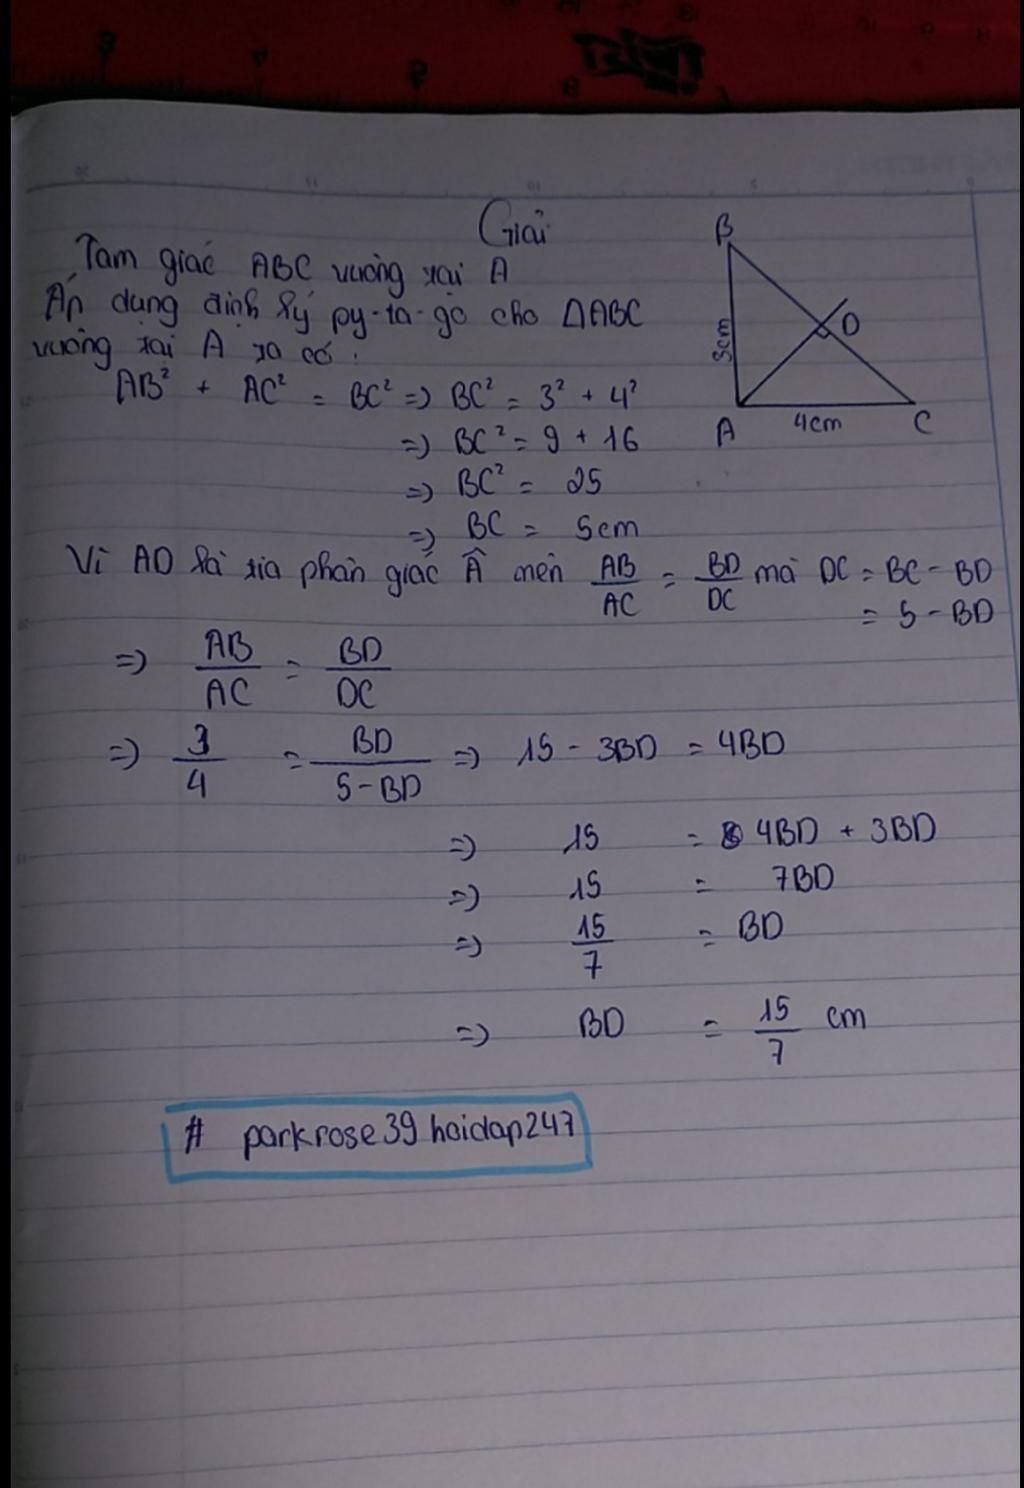 Giải
Tam giác ABC vuông tại A
Áp dụng định lý py-ta-go cho ΔABC
vuông tại A ta có:
AB² + AC² = BC² => BC² = 3² + 4²
=> BC² = 9 + 16
=> BC² = 25
=> BC = 5cm
B
3cm
D
A
4cm
C
Vì AD là tia phân giác Â nên AB/AC = BD/DC mà DC = BC - BD
= 5 - BD
=> AB/AC = BD/DC
=> 3/4 = BD/5-BD => 15 - 3BD = 4BD
=> 15 = 4BD + 3BD
=> 15 = 7BD
=> 15/7 = BD
=> BD = 15/7 cm
# parkrose39 hoidap247